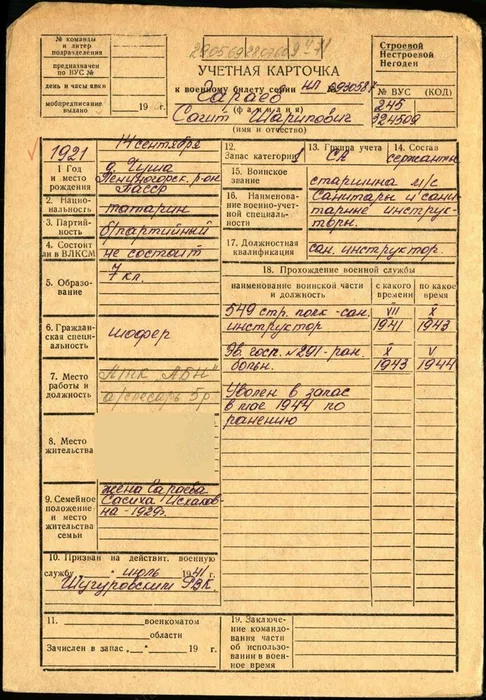 № команды
и литер
подразделения
предназначен
по ВУС №
день и часы явки
мобпредписание
выдано 19 г.
УЧЕТНАЯ КАРТОЧКА
к военному билету серии НП №
Сараев
(фамилия)
Сагит Шарипович
(имя и отчество)
Строевой
Нестроевой
Негоден
№ ВУС (КОД)
245
324509
1921 14 сентября
1 Год
и место
рождения
р-он
Тасср
2. Нацио-
нальность татарин
3. Партий-
ность б/партийный
4. Состоит
ли в ВЛКСМ не состоит
5. Образо-
вание 7 кл.
6. Граждан-
ская специ-
альность шофер
7. Место
работы и
должность
5р
8. Место
жительства
9. Семейное
положение
и место
жительства
семьи
жена Сараева
Исхаков-
на - 1929г.
10. Призван на действит. военную
службу „ " июль 1941г.
Шугуровским РВК.
11. военкоматом
области
Зачислен в запас „ " 19 г.
12.
Запас категории
13. Группа учета
СА
14. Состав
сержанты
15. Воинское
звание старшина м/с
16. Наименование
военно-учет-
ной специаль-
ности
Санитары и сани-
тарные инструк-
торы.
17. Должностная
квалификация сан. инструктор.
18. Прохождение военной службы
наименование воинской части
и должность
с какого
времени
по какое
время
549 стр. полк - сан. VIII X
инструктор 1941 1943
Эв. госп. №291 - ран. X V
больн. 1943 1944
Уволен в запас
в мае 1944 по
ранению
19. Заключение
командо-
вания части
об использо-
вании в воен-
ное время